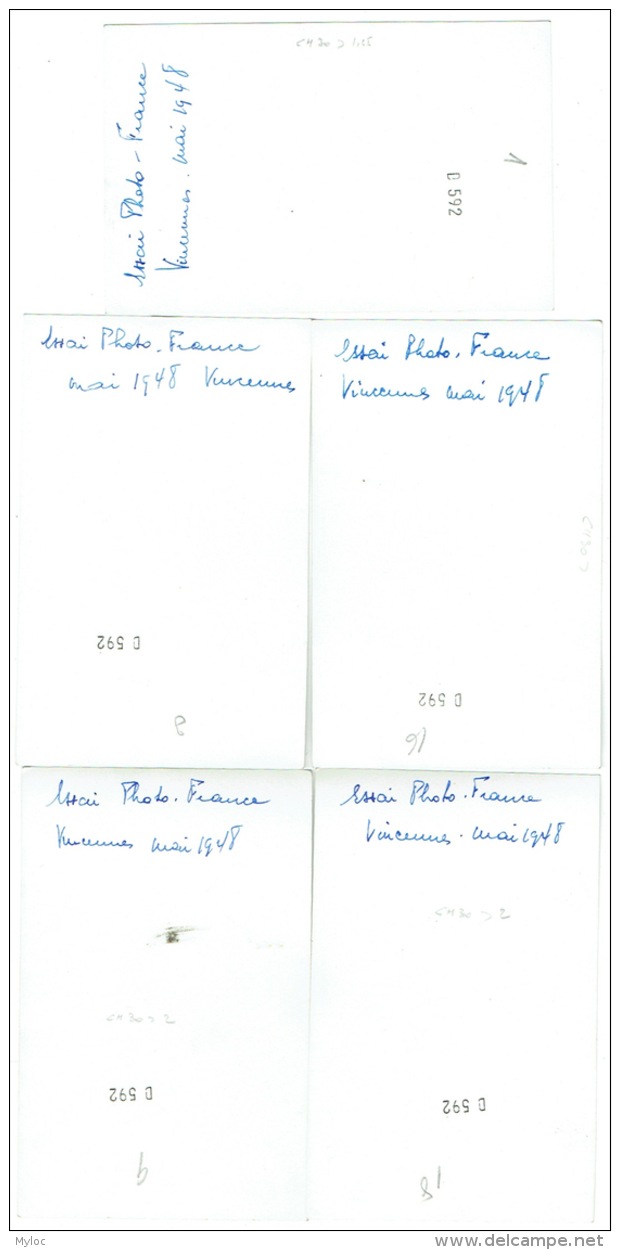 CH30 > 1.25
Essai Photo - France
Vincennes. mai 1948
1
D 592
Essai Photo. France
mai 1948 Vincennes
D 592
8
Essai Photo. France
Vincennes mai 1948
D 592
16
Essai Photo. France
Vincennes mai 1948
CH30 > 2
D 592
9
Essai Photo. France
Vincennes. mai 1948
CH30 > 2
D 592
18
Myloc
delcampe.net